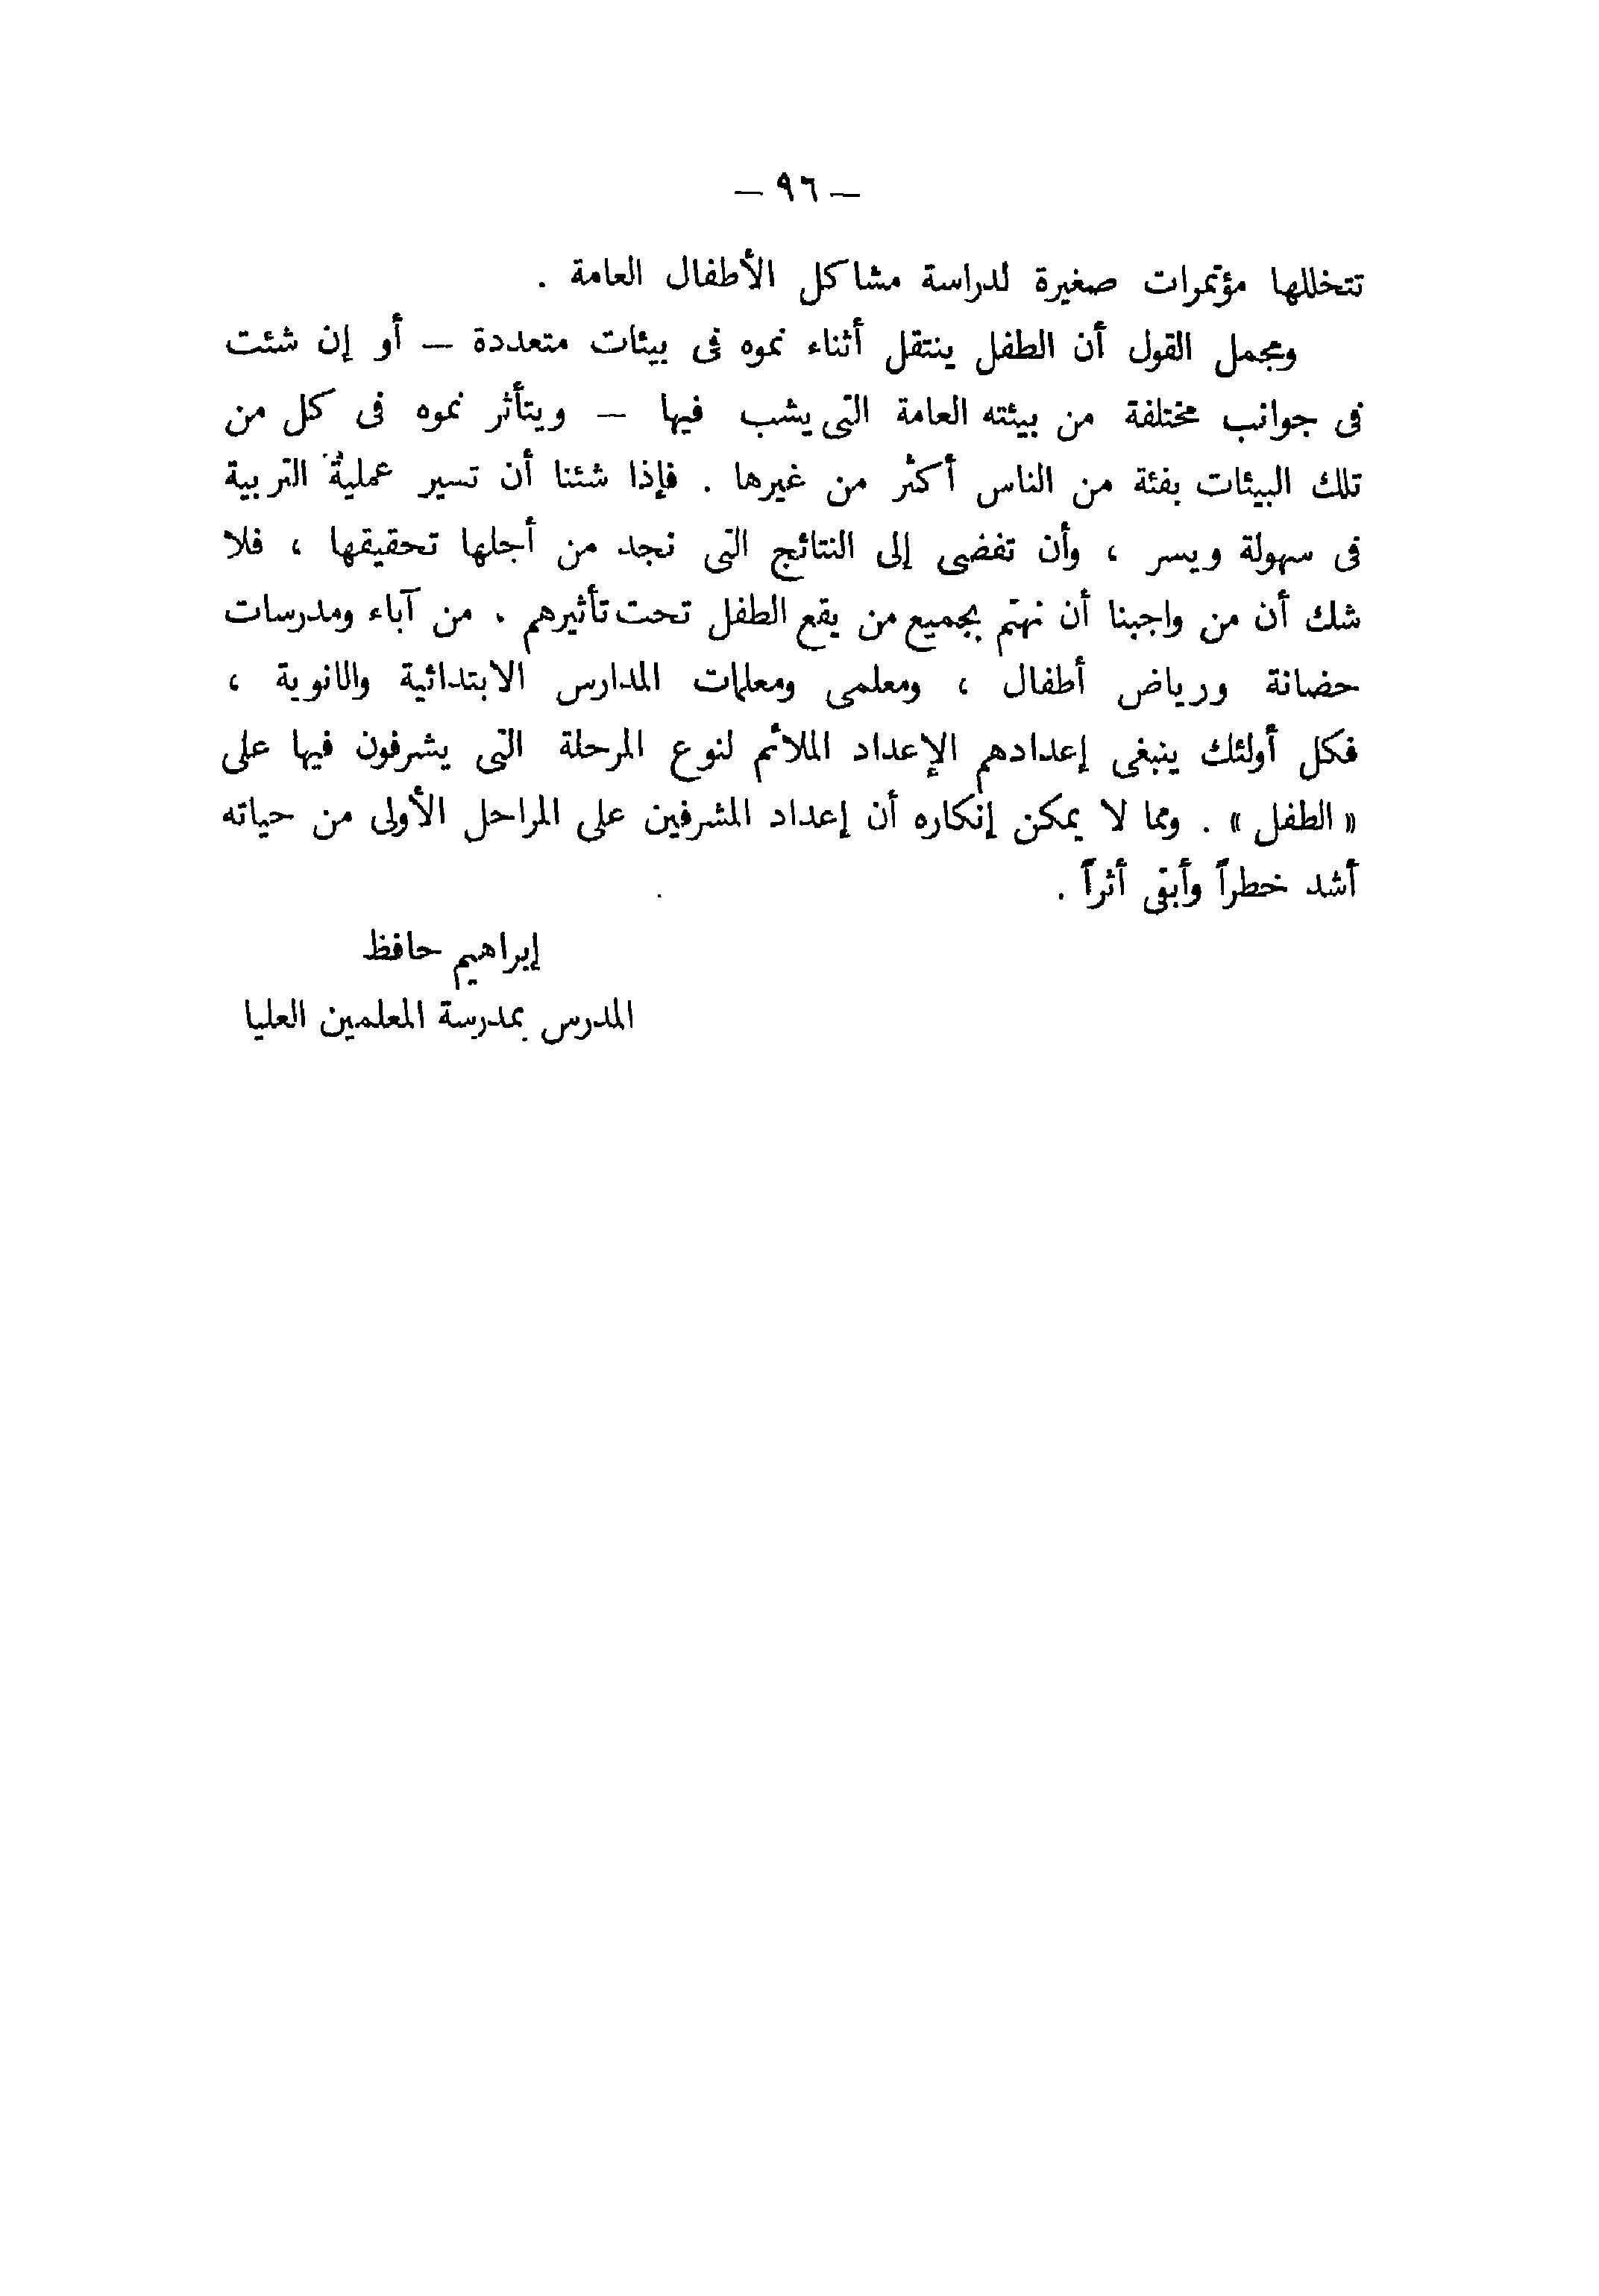 — ٩٦ —
تتخللها مؤتمرات صغيرة لدراسة مشاكل الأطفال العامة .
ومجمل القول أن الطفل ينتقل أثناء نموه فى بيئات متعددة — أو إن شئت
فى جوانب مختلفة من بيئته العامة التى يشب فيها — ويتأثر نموه فى كل من
تلك البيئات بفئة من الناس أكثر من غيرها . فإذا شئنا أن تسير عملية التربية
فى سهولة ويسر ، وأن تفضى إلى النتائج التى نجد من أجلها تحقيقها ، فلا
شك أن من واجبنا أن نهتم بجميع من يقع الطفل تحت تأثيرهم . من آباء ومدرسات
حضانة ورياض أطفال ، ومعلمى ومعلمات المدارس الابتدائية والانوية ،
فكل أولئك ينبغى إعدادهم الإعداد الملائم لنوع المرحلة التى يشرفون فيها على
« الطفل » . ومما لا يمكن إنكاره أن إعداد المشرفين على المراحل الأولى من حياته
أشد خطراً وأبقى أثراً .
إبراهيم حافظ
المدرس بمدرسة المعلمين العليا